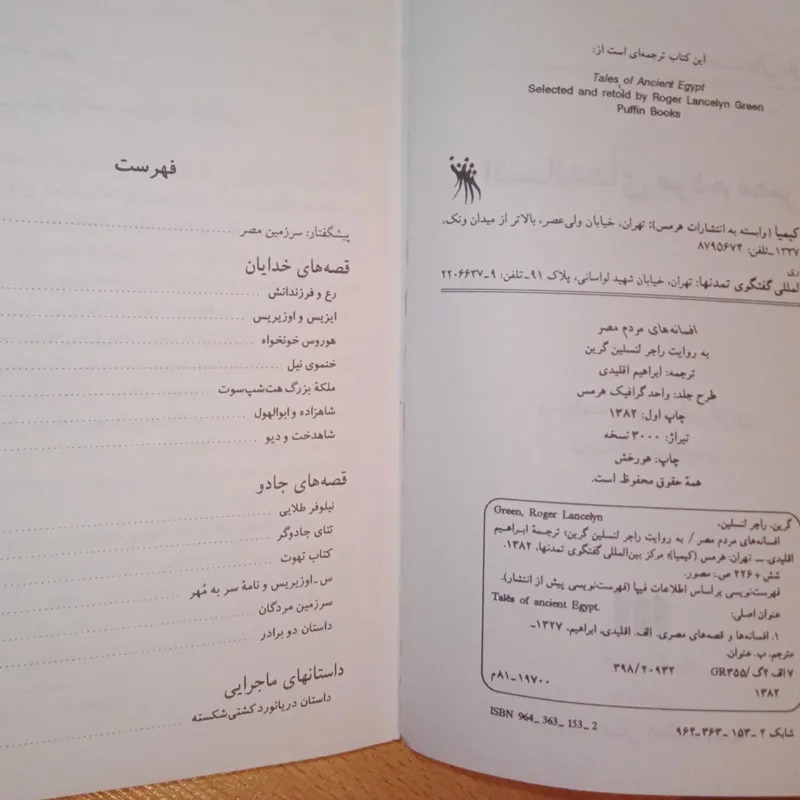 این کتاب ترجمه‌ای است از:
Tales of Ancient Egypt
Selected and retold by Roger Lancelyn Green
Puffin Books
کیمیا (وابسته به انتشارات هرمس): تهران، خیابان ولی‌عصر، بالاتر از میدان ونک،
۱۳۳۷ـ تلفن: ۸۷۹۵۶۷۴
لمللی گفتگوی تمدنها: تهران، خیابان شهید لواسانی، پلاک ۹۱ـ تلفن: ۹ـ۲۲۰۶۶۳۷
افسانه‌های مردم مصر
به روایت راجر لنسلین گرین
ترجمه: ابراهیم اقلیدی
طرح جلد: واحد گرافیک هرمس
چاپ اول: ۱۳۸۲
تیراژ: ۳۰۰۰ نسخه
چاپ: هورخش
همهٔ حقوق محفوظ است.
Green, Roger Lancelyn
گرین، راجر لنسلین.
افسانه‌های مردم مصر / به روایت راجر لنسلین گرین؛ ترجمهٔ ابراهیم
اقلیدی. ـ تهران: هرمس (کیمیا)؛ مرکز بین‌المللی گفتگوی تمدنها، ۱۳۸۲.
شش + ۲۲۶ ص.: مصور.
فهرست‌نویسی بر اساس اطلاعات فیپا (فهرست‌نویسی پیش از انتشار).
Tales of ancient Egypt.
عنوان اصلی:
۱. افسانه‌ها و قصه‌های مصری. الف. اقلیدی، ابراهیم، ۱۳۲۷ـ
مترجم. ب. عنوان.
۷ الف ۴گ/ GR۳۵۵
۳۹۸/۲۰۹۳۲
۱۳۸۲
۱۹۷۰۰ـ۸۱م
ISBN 964_ 363_ 153_ 2
شابک ۲ـ۱۵۳ـ۳۶۳ـ۹۶۴
فهرست
پیشگفتار: سرزمین مصر
قصه‌های خدایان
رع و فرزندانش
ایزیس و اوزیریس
هوروس خونخواه
خنموی نیل
ملکهٔ بزرگ هت‌شپ‌سوت
شاهزاده و ابوالهول
شاهدخت و دیو
قصه‌های جادو
نیلوفر طلایی
تتای جادوگر
کتاب تهوت
س ـ اوزیریس و نامهٔ سر به مُهر
سرزمین مردگان
داستان دو برادر
داستانهای ماجرایی
داستان دریانورد کشتی‌شکسته